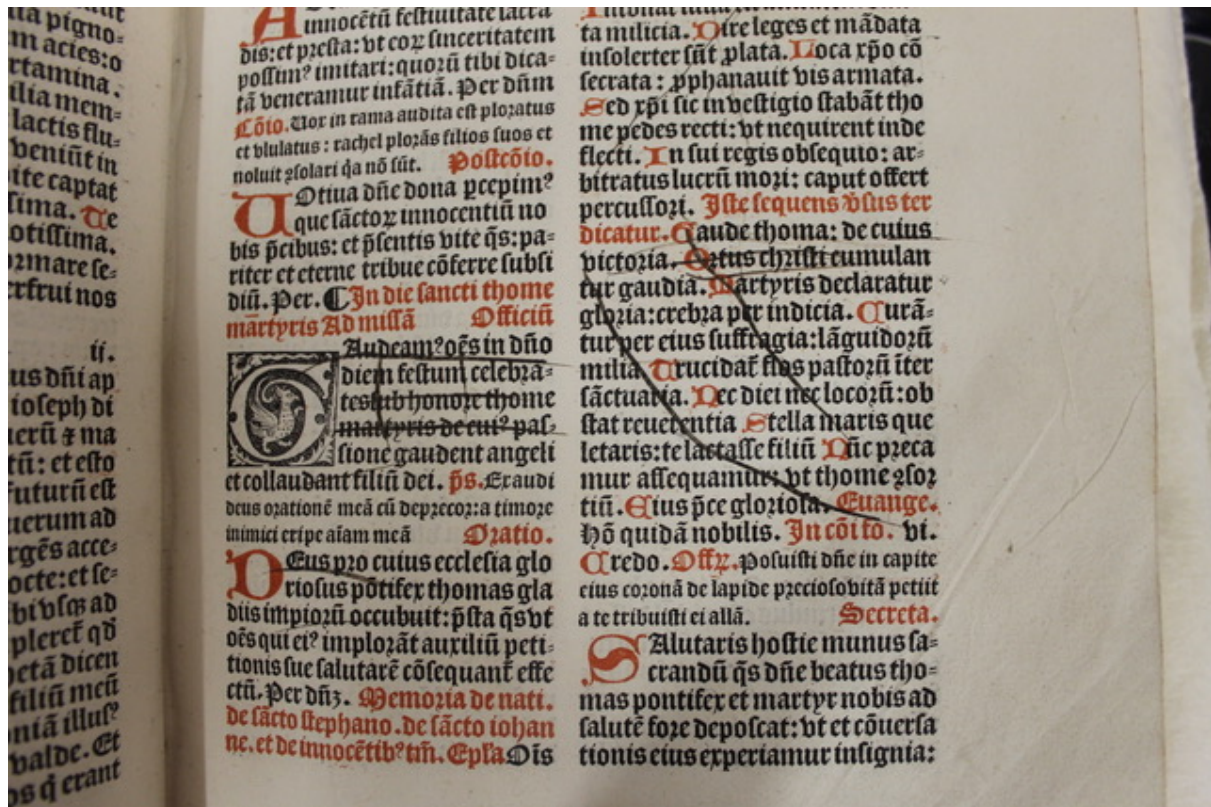 ta pigno=
m acies:o
rtamina.
ilia mem=
lactis flu=
veniūt in
ite captat
sima. Te
otissima.
ormare se=
erfrui nos
ij.
us dñi ap
ioseph di
erū ⁊ ma
tū: et esto
uturū est
uerum ad
rgēs acce=
octe: et se=
bi vsqꝫ ad
pleret̄ qđ
hetā dicen
filiū meū
oniā illusꝰ
valde. Et
os q̄ erant
innocētū festiuitate lacta
dis: et presta: vt eoꝝ sinceritatem
possimꝰ imitari: quorū tibi dica=
tā veneramur infātiā. Per dñm
Cōio. Vox in rama audita est ploratus
et vlulatus: rachel plorās filios suos et
noluit ꝯsolari q̇a nō sūt. Postcōio.
VOtiua dñe dona ꝑcepimꝰ
que sāctoꝝ innocentiū no
bis p̄cibus: et p̄sentis vite q̄s: pa=
riter et eterne tribue cōferre subsi
diū. Per. ¶ In die sancti thome
martyris Ad missā Officiū
GAudeamꝰ oēs in dño
diem festum celebrā=
tes sub honore thome
martyris de cuiꝰ pas=
sione gaudent angeli
et collaudant filiū dei. p̄s. Exaudi
deus orationē meā cū deprecor: a timore
inimici eripe aīam meā Oratio.
DEus pro cuius ecclesia glo
riosus pōtifex thomas gla
diis impiorū occubuit: p̄sta q̄s vt
oēs qui eiꝰ implorāt auxiliū peti=
tionis sue salutarē cōsequant̄ effe
ctū. Per dñꝫ. Memoria de nati.
de sācto stephano. de sācto iohan
ne. et de innocētibꝰ tm̄. Epl̄a Oīs
ta milicia. Dire leges et mādata
insolerter sūt ꝓlata. Loca xp̄o cō
secrata: ꝓphanauit vis armata.
Sed xp̄i sic in vestigio stabāt tho
me pedes recti: vt nequirent inde
flecti. In sui regis obsequio: ar=
bitratus lucrū mori: caput offert
percussori. Iste sequens v̄sus ter
dicatur. Gaude thoma: de cuius
victoria. Ortus christi cumulan
tur gaudia. Martyris declaratur
gloria: crebra per indicia. Curā=
tur per eius suffragia: lāguidorū
milia. Trucidat̄ flos pastorū īter
sāctuaria. Nec dici nec locorū: ob
stat reuerentia Stella maris que
letaris: te lactasse filiū Nūc preca
mur assequamur: vt thome ꝯsor
tiū. Eius p̄ce gloriosa. Euange.
Hō quidā nobilis. In cōi fo. vi.
Credo. Offꝝ. Posuisti dñe in capite
eius coronā de lapide precioso vitā petiit
a te tribuisti ei allā. Secreta.
SAlutaris hostie munus sa=
crandū q̄s dñe beatus tho=
mas pontifex et martyr nobis ad
salutē fore deposcat: vt et cōuersa
tionis eius experiamur insignia: